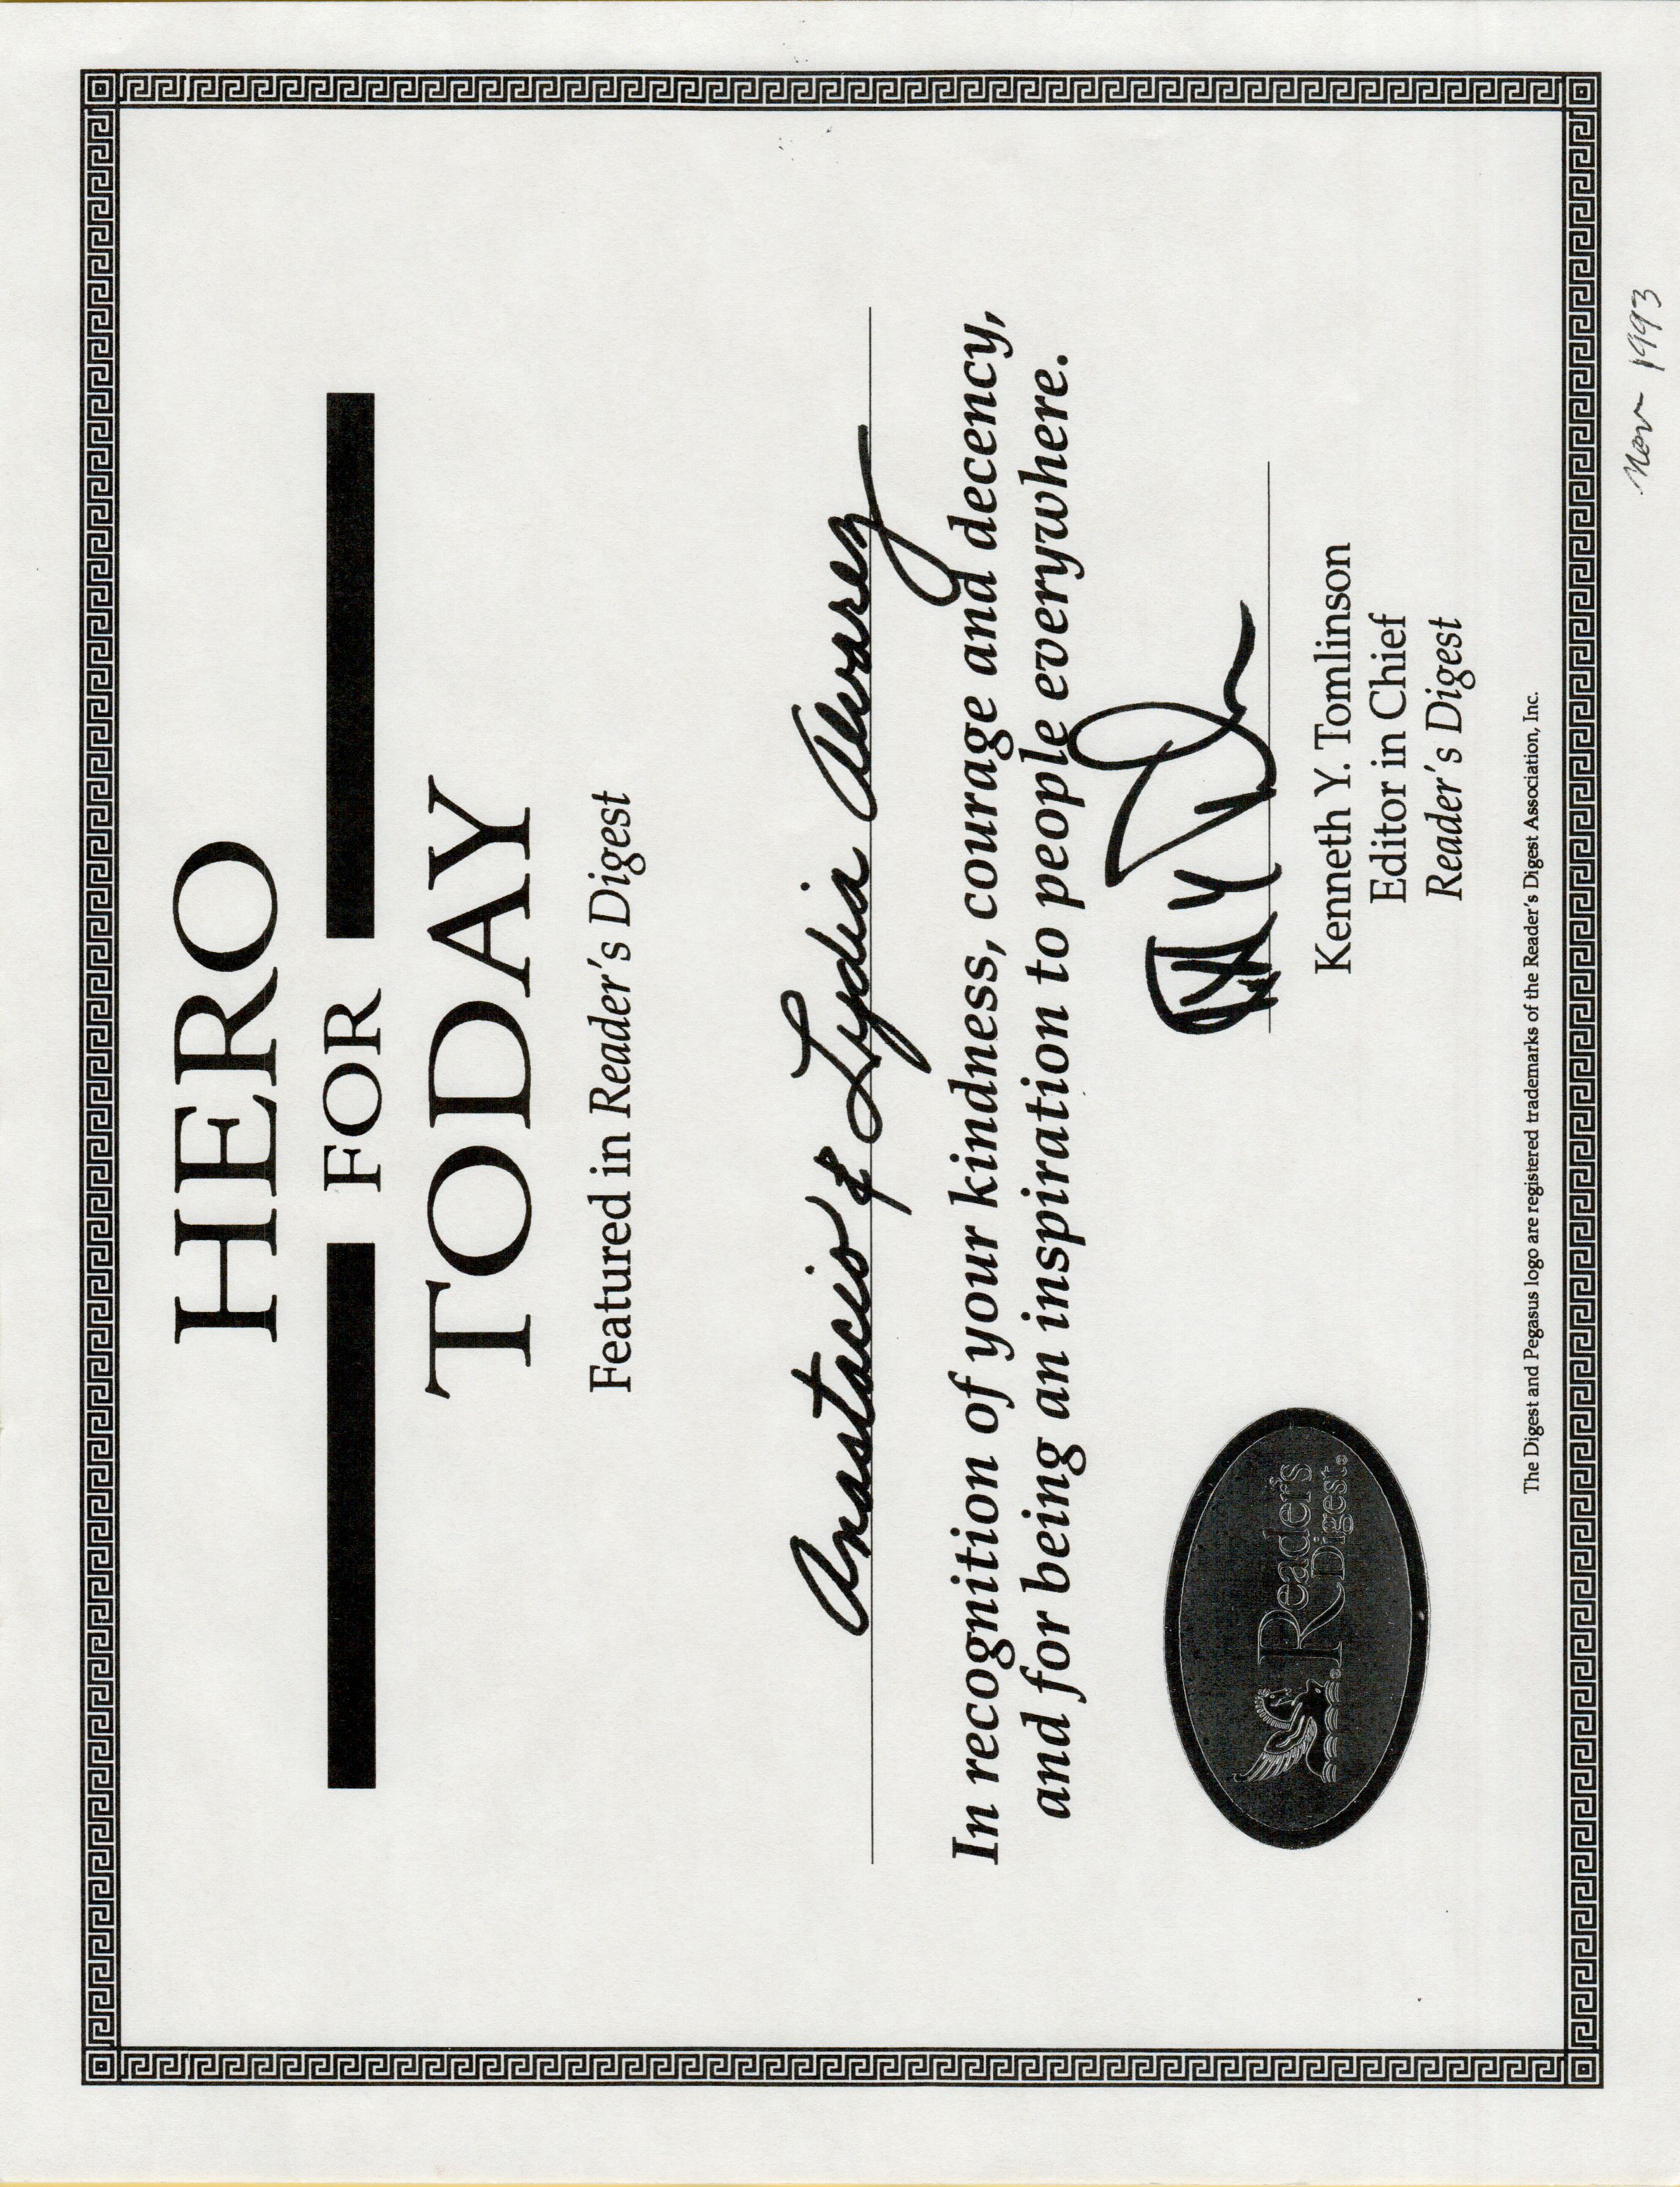 HERO
FOR
TODAY
Featured in Reader's Digest
Anastacio & Lydia Alvarez
In recognition of your kindness, courage and decency,
and for being an inspiration to people everywhere.
Reader's
Digest
Kenneth Y. Tomlinson
Editor in Chief
Reader's Digest
The Digest and Pegasus logo are registered trademarks of the Reader's Digest Association, Inc.
Nov 1993